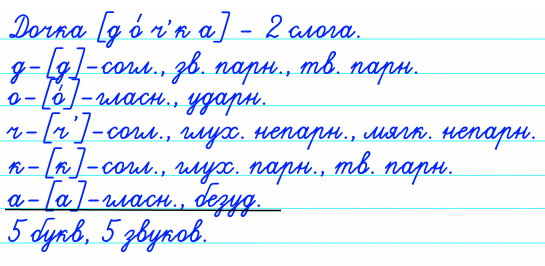 Дочка [д о́ ч' к а] – 2 слога.
д – [д] – согл., зв. парн., тв. парн.
о – [о́] – гласн., ударн.
ч – [ч'] – согл., глух. непарн., мягк. непарн.
к – [к] – согл., глух. парн., тв. парн.
а – [а] – гласн., безуд.
5 букв, 5 звуков.